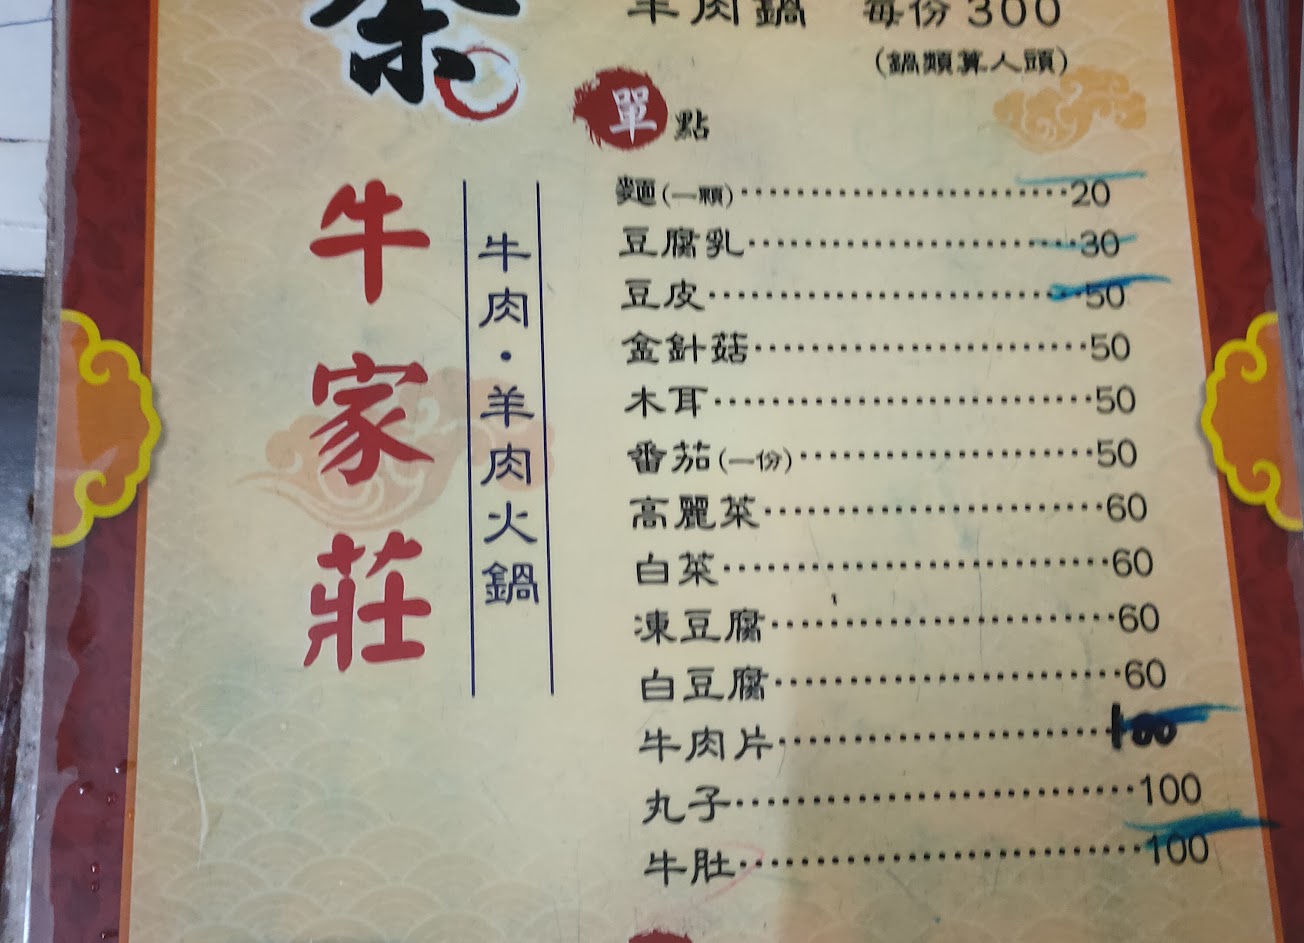 羊肉鍋 每份300
(鍋類算人頭)
單點
麵(一顆)························20
豆腐乳························30
豆皮························50
金針菇························50
木耳························50
番茄(一份)························50
高麗菜························60
白菜························60
凍豆腐························60
白豆腐························60
牛肉片························100
丸子························100
牛肚························100
牛家莊
牛肉·羊肉火鍋